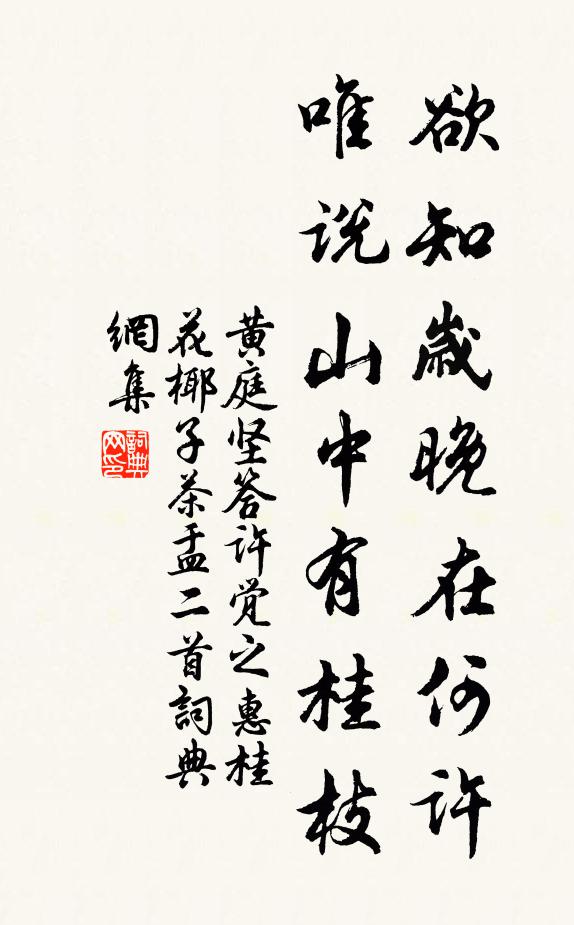 欲知歲晚在何许
唯说山中有桂枝
黄庭坚答许觉之惠桂
花椰子茶盂二首詞典
網集
詞典网印